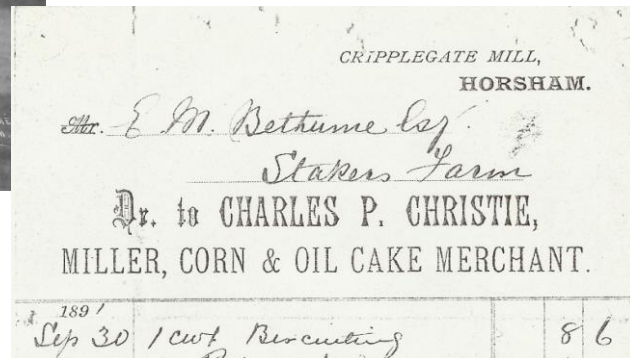 CRIPPLEGATE MILL,
HORSHAM.
Mr. E. M. Bethune Esq.
Stakers Farm
Dr. to CHARLES P. CHRISTIE,
MILLER, CORN & OIL CAKE MERCHANT.
1891
Sep 30 1 cwt Biscuiting 8 6